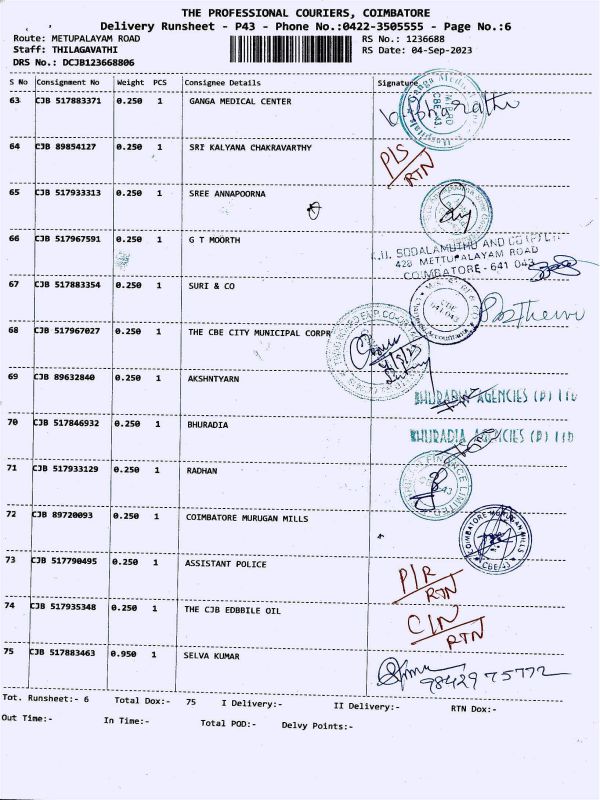 THE PROFESSIONAL COURIERS, COIMBATORE
Delivery Runsheet - P43 - Phone No.:0422-3505555 - Page No.:6
Route: METUPALAYAM ROAD RS No.: 1236688
Staff: THILAGAVATHI RS Date: 04-Sep-2023
DRS No.: DCJB123668806
S No Consignment No Weight PCS Consignee Details Signature
63 CJB 517883371 0.250 1 GANGA MEDICAL CENTER
64 CJB 89854127 0.250 1 SRI KALYANA CHAKRAVARTHY P/S RTN
65 CJB 517933313 0.250 1 SREE ANNAPOORNA
66 CJB 517967591 0.250 1 G T MOORTH
SODALAMUTHU AND CO
428 METTUPALAYAM ROAD
COIMBATORE - 641 043
67 CJB 517883354 0.250 1 SURI & CO
68 CJB 517967027 0.250 1 THE CBE CITY MUNICIPAL CORPR
69 CJB 89632840 0.250 1 AKSHNTYARN
BHURADIA AGENCIES (P) LTD
70 CJB 517846932 0.250 1 BHURADIA
BHURADIA AGENCIES (P) LTD
71 CJB 517933129 0.250 1 RADHAN
FINANCE LIMITED
72 CJB 89720093 0.250 1 COIMBATORE MURUGAN MILLS
COIMBATORE MURUGAN MILLS
CBE-43
73 CJB 517790495 0.250 1 ASSISTANT POLICE P/R RTN
74 CJB 517935348 0.250 1 THE CJB EDBBILE OIL C/N RTN
75 CJB 517883463 0.950 1 SELVA KUMAR
9842975772
Tot. Runsheet:- 6 Total Dox:- 75 I Delivery:- II Delivery:- RTN Dox:-
Out Time:- In Time:- Total POD:- Delvy Points:-